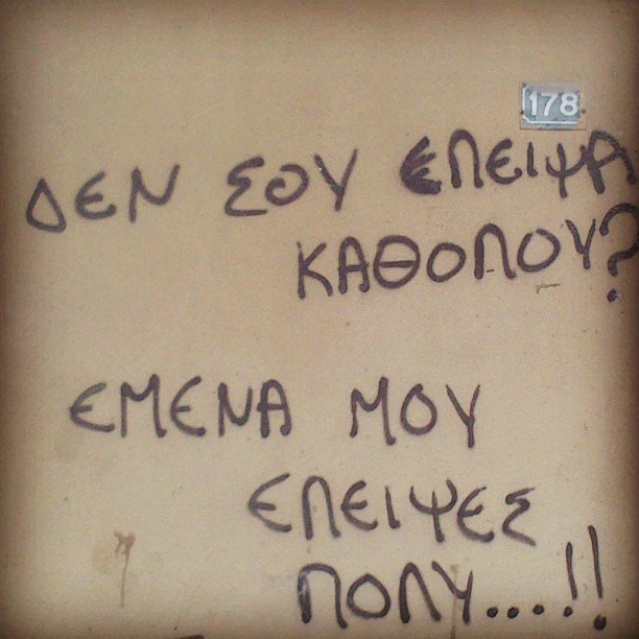 178
ΔΕΝ ΣΟΥ ΕΛΕΙΨΑ
ΚΑΘΟΛΟΥ?
ΕΜΕΝΑ ΜΟΥ
ΕΛΕΙΨΕΣ
ΠΟΛΥ....!!